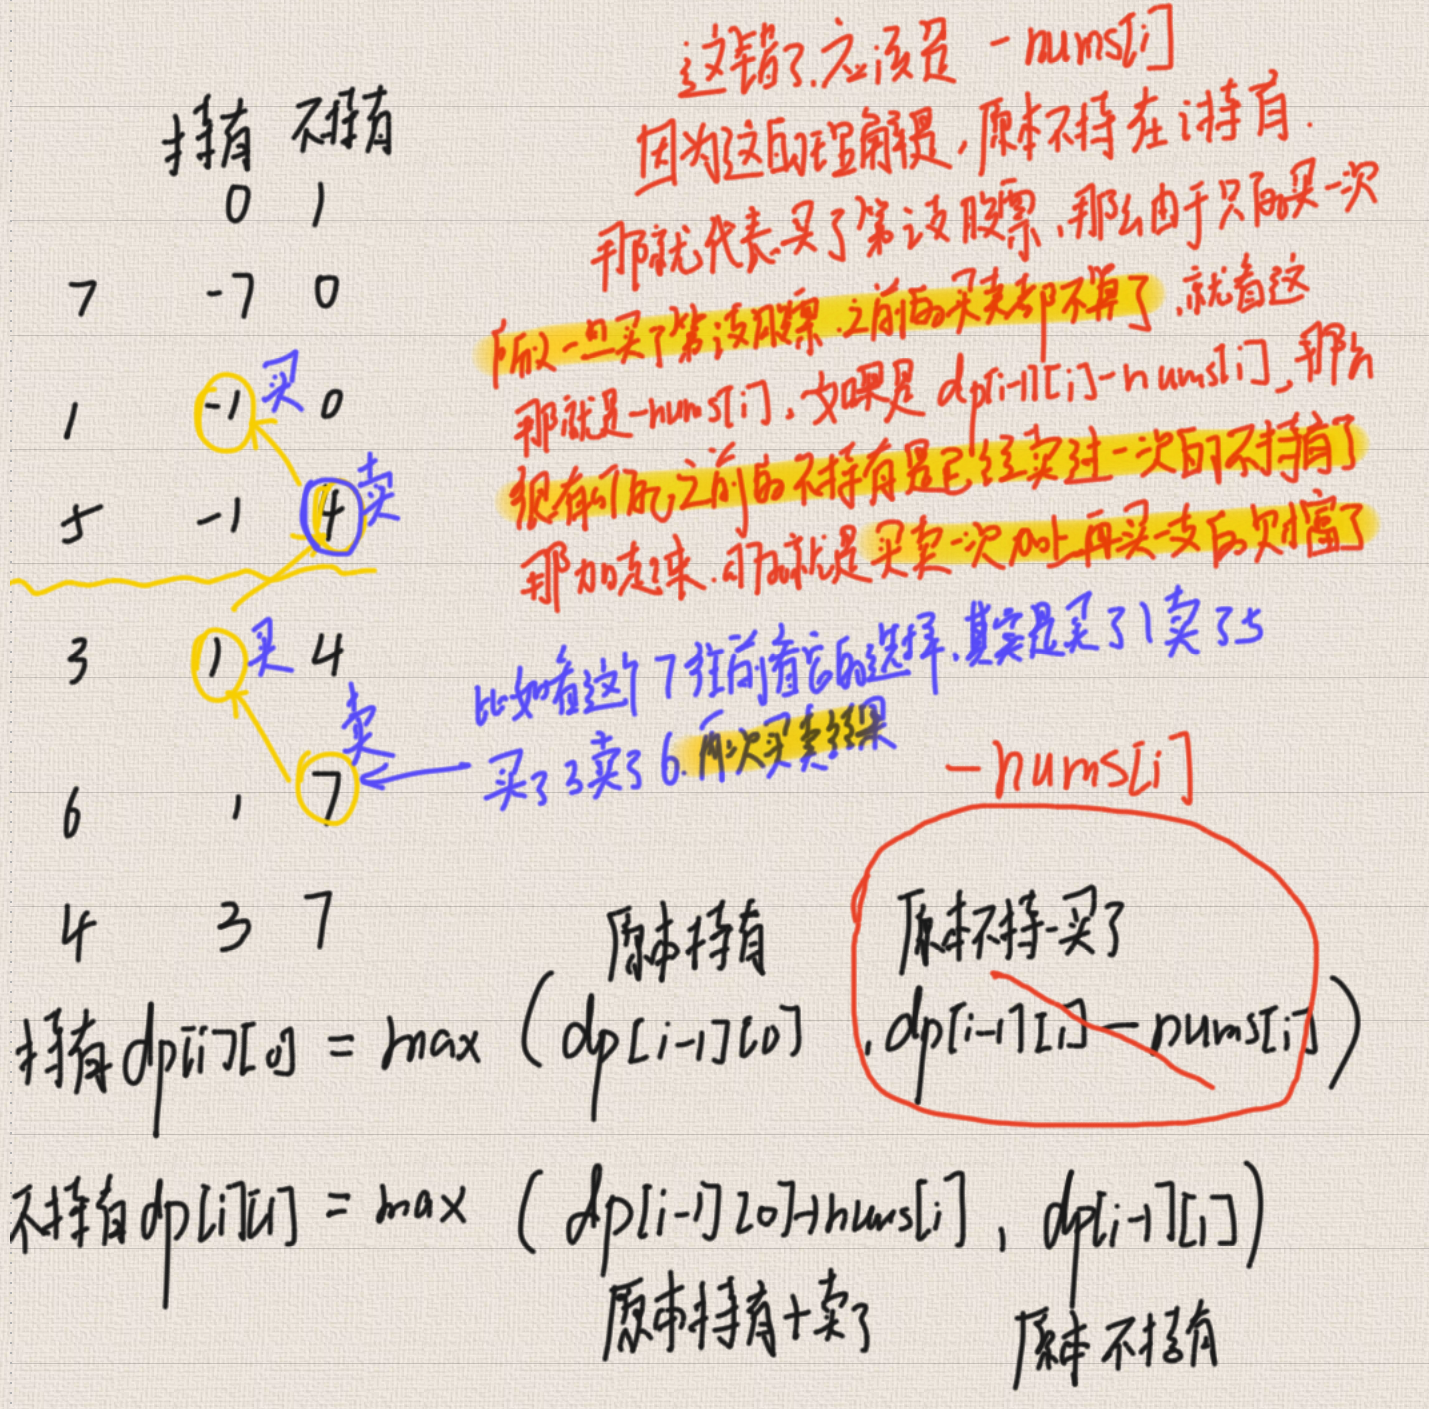 这错了.应该是 -nums[i]
因为这的理解是,原本不持在i持有.
那就代表买了第i支股票,那么由于只能买一次
所以一旦买了第i支股票.之前的买卖都不算了,就看这
那就是-nums[i],如果是dp[i-1][1]-nums[i],那么
很有可能之前的不持有是已经卖过一次的不持有了
那加起来.可能就是买卖一次加上再买一支的财富了
持有 不持有
0 1
7 -7 0
1 -1 买 0
5 -1 4 卖
3 1 买 4
比如看这个7往前看它的选择,其实是买了1卖了5
卖
买了3卖了6.两次买卖结果
6 1 7
-nums[i]
4 3 7
原本持有 原本不持-买了
持有dp[i][0] = max (dp[i-1][0] , dp[i-1][1]-nums[i])
不持有dp[i][1] = max (dp[i-1][0]+nums[i] , dp[i-1][1])
原本持有+卖了 原本不持有